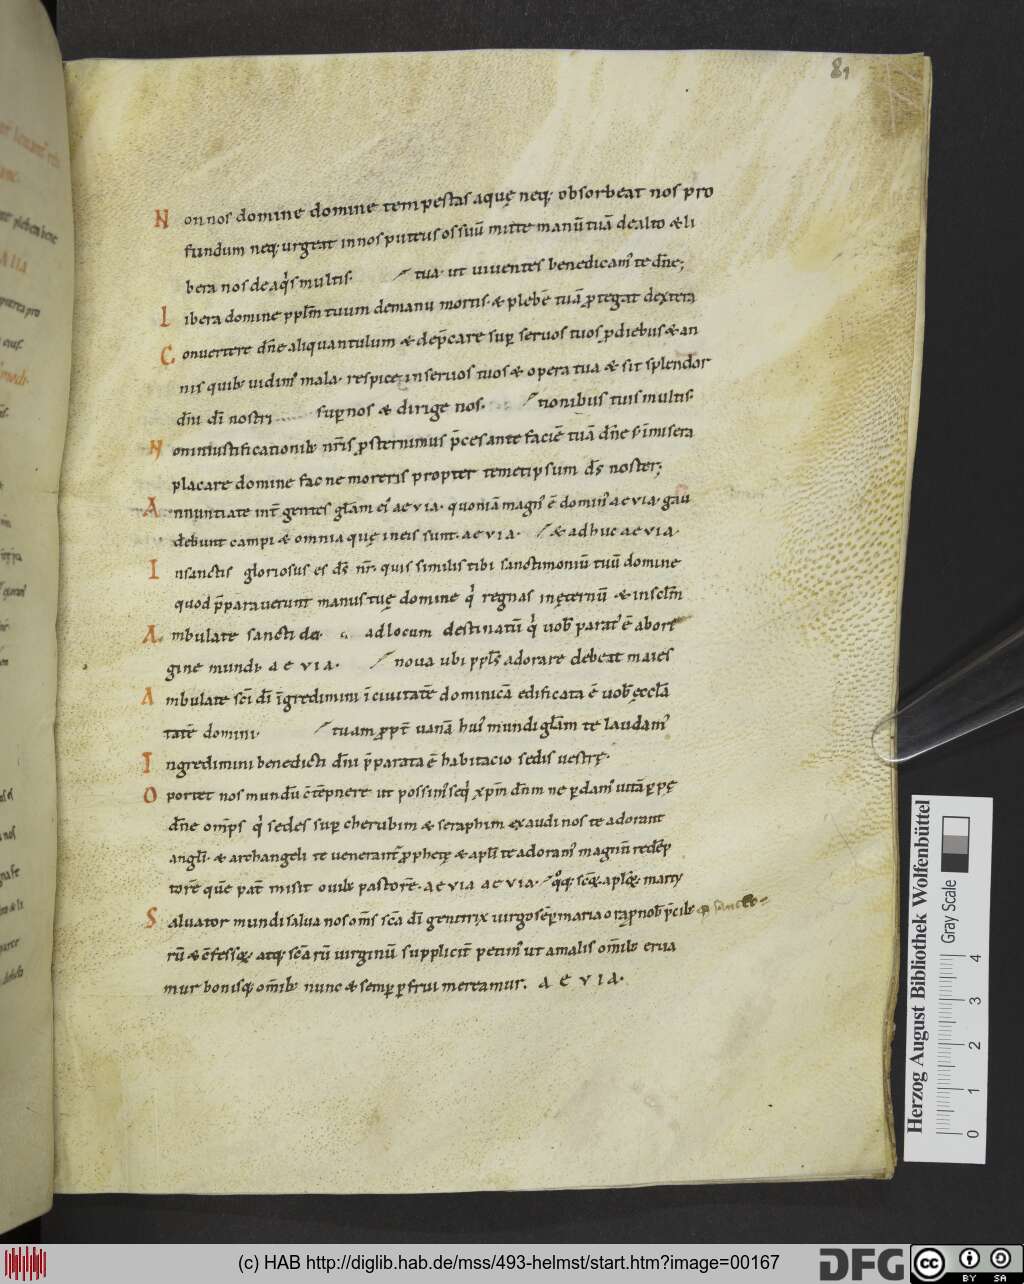 81
Non nos domine domine tempestas aquę neq; obsorbeat nos pro
fundum neq; urgeat in nos puteus os suū mitte manū tuā de alto & li
bera nos de aq̇s multis. tua. ut viventes benedicam' te dn̄e;
Libera domine ppl̄m tuum de manu mortis. & plebē tuā ꝓtegat dextera
Convertere dn̄e aliquantulum & dep̄care suꝑ servos tuos ꝓ diebus & an
nis quib; vidim' mala. respice in servos tuos & opera tua & sit splendor
dn̄i dī nostri suꝑ nos & dirige nos. tionibus tuis multis.
Non in iustificationib; nr̄is ꝓsternimus p̄ces ante faciē tuā dn̄e
placare domine fac ne moreris propter temetipsum ds̄ noster;
Annuntiate int̄ gentes gl̄am ei' aevia. quoniā magn' ē domin' aevia. gau
debunt campi & omnia quę in eis sunt. aevia. & adhuc aevia.
In sanctis gloriosus es ds̄ nr̄. quis similis tibi sanctimoniū tuū domine
quod p̄paraverunt manus tuę domine q̇ regnas in ęternū. & in scl̄m
Ambulate sancti dei ad locum destinatū q̇ vob̄ parat' ē ab ori
gine mundi. aevia. nova ubi ppl̄s adorare debeat maies
Ambulate sc̄i dī īgredimini ī civitatē dominicā edificata ē vob̄ ęccl̄a
tatē domini. tuam ꝓpt̄ vanā hui' mundi gl̄am te laudam'
Ingredimini benedicti dn̄i p̄parata ē habitacio sedis vestrę.
Oportet nos mundū c̄tēpnere ut possim' seq̇ xp̄m dn̄m ne ꝑdam' vitā ꝑpę
dn̄e om̄ps q̇ sedes suꝑ cherubim & seraphim exaudi nos te adorant
angl̄i. & archangeli te venerant̄ ꝓphetę & apl̄i te adoram' magnū redēp
torē quē pat̄ misit ovib; pastorē. aevia aevia.
Salvator mundi salva nos om̄s sc̄a dī genitrix virgo sēꝑ maria
rū & c̄fessoꝝ. atq; sc̄arū virginū suppliciт petim' ut a malis om̄ib; erua
mur bonisq; om̄ib; nunc & semꝑ ꝑfrui mereamur. aevia.
Herzog August Bibliothek Wolfenbüttel
Gray Scale
0 1 2 3 4
(c) HAB http://diglib.hab.de/mss/493-helmst/start.htm?image=00167
DFG
cc BY SA